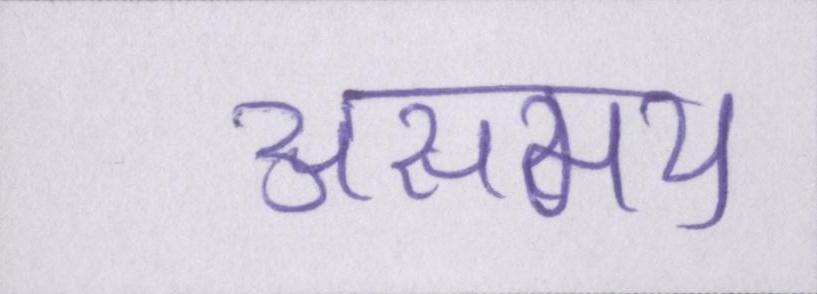 असमय